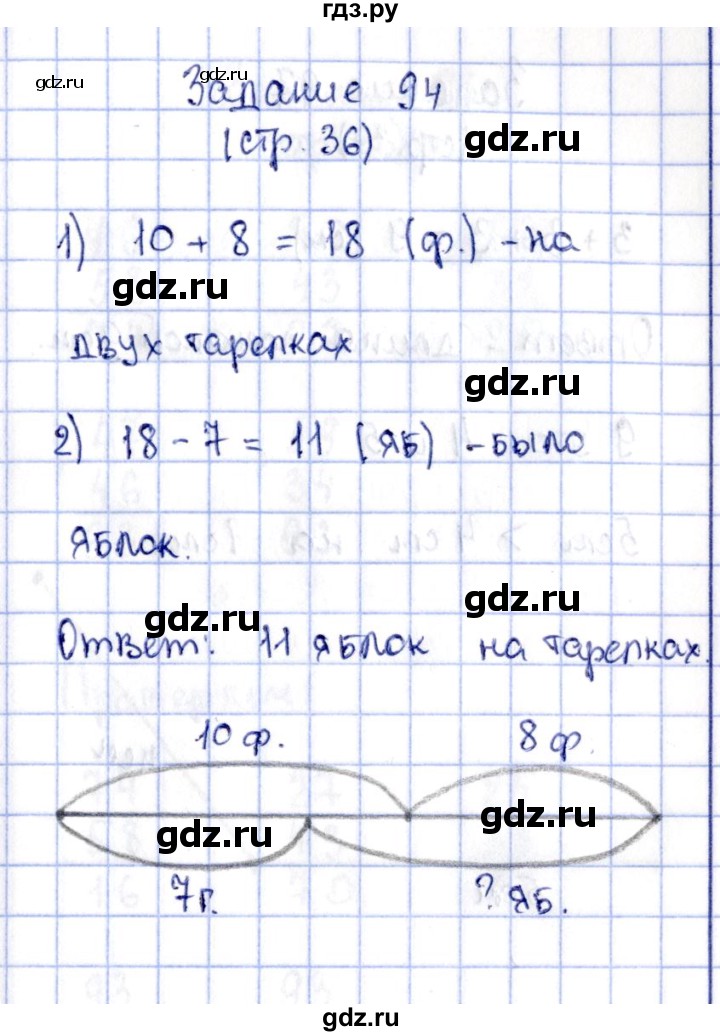 гдз.ру
gdz.ru gdz.ru
Задание 94
gdz.ru
(стр. 36)
1) 10 + 8 = 18 (ф.) - на
gdz.ru
двух тарелках
gdz.ru
2) 18 - 7 = 11 (яб) - было
gdz.ru
яблок.
gdz.ru
gdz.ru
Ответ: 11 яблок на тарелках.
10 ф. 8 ф.
gdz.ru
gdz.ru
7 г. ? яб.
gdz.ru
gdz.ru